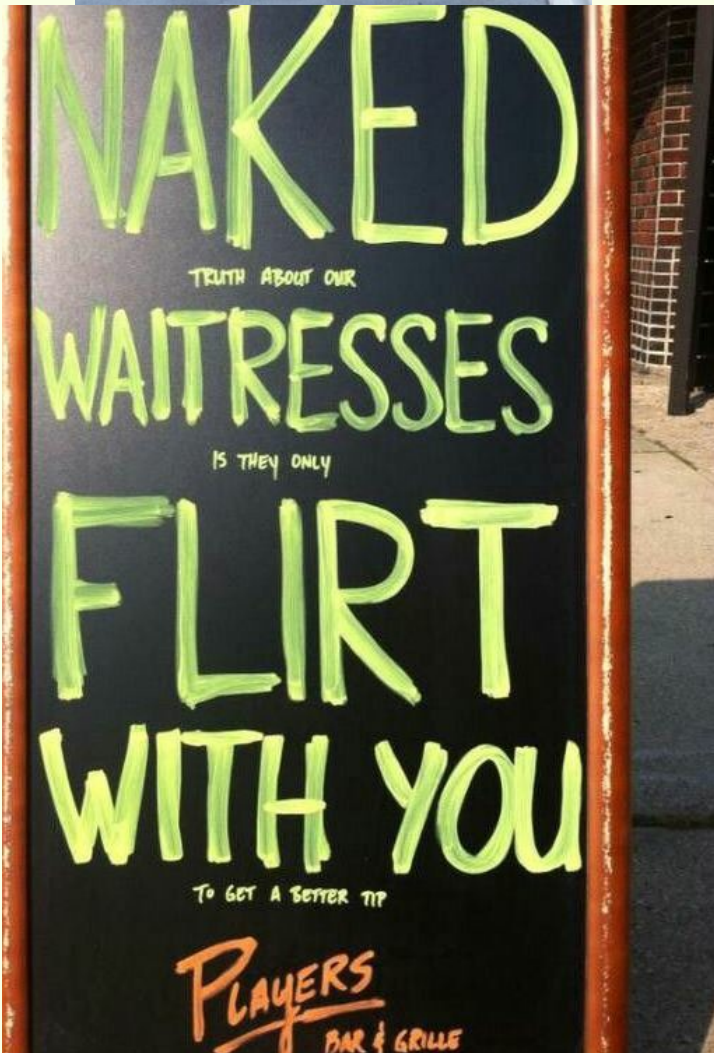 NAKED
TRUTH ABOUT OUR
WAITRESSES
IS THEY ONLY
FLIRT
WITH YOU
TO GET A BETTER TIP
PLAYERS
BAR & GRILLE